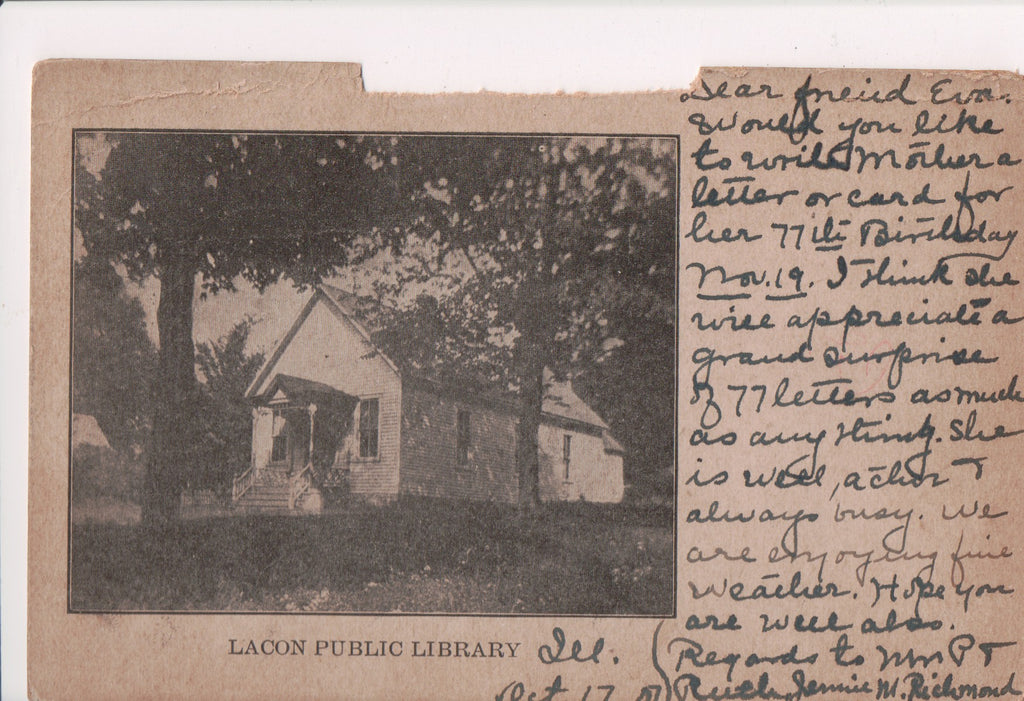 Dear freind Eva.
Would you like
to write Mother a
letter or card for
her 77th Birthday
Nov. 19. I think she
will appreciate a
grand surprise
of 77 letters as much
as anything. She
is well, active +
always busy. We
are enjoying fine
weather. Hope you
are well also.
Regards to Mrs P +
Ruth, Jennie M. Richmond
LACON PUBLIC LIBRARY Ill.
Oct 17